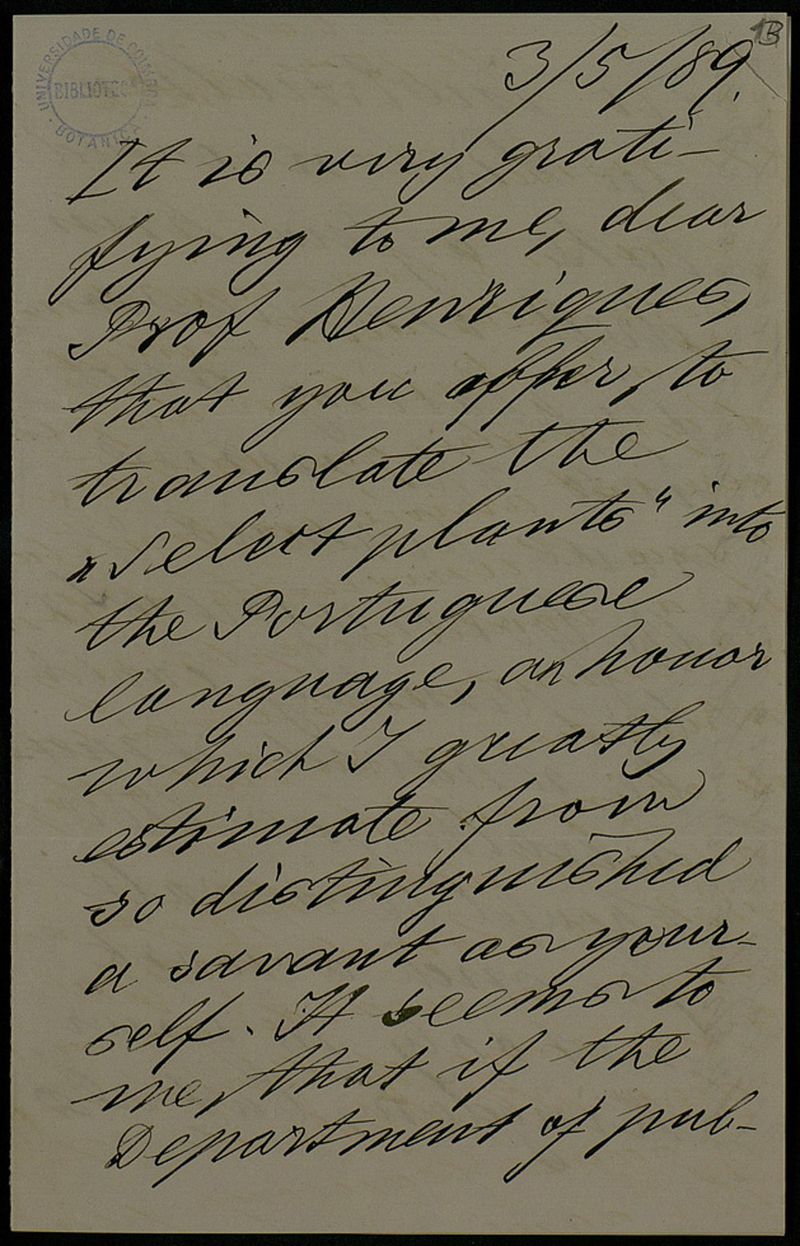 UNIVERSIDADE DE COIMBRA
BIBLIOTECA
BOTANICA
13
3/5/89.
It is very grati-
fying to me, dear
Prof Henriques,
that you offer, to
translate the
"Select plants" into
the Portuguese
language, an honor
which I greatly
estimate from
so distinguished
a savant as your-
self. It seems to
me, that if the
Department of pub-